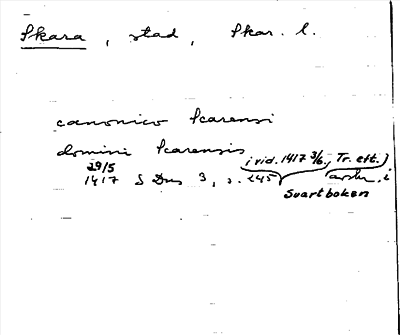 Skara, stad, Skar. l.
canonico Scarensi
domini Scarensis
29/5 i vid. 1417 3/6, Tr. eft.)
1417 SD ns 3, s. 245 avskr. i
Svartboken